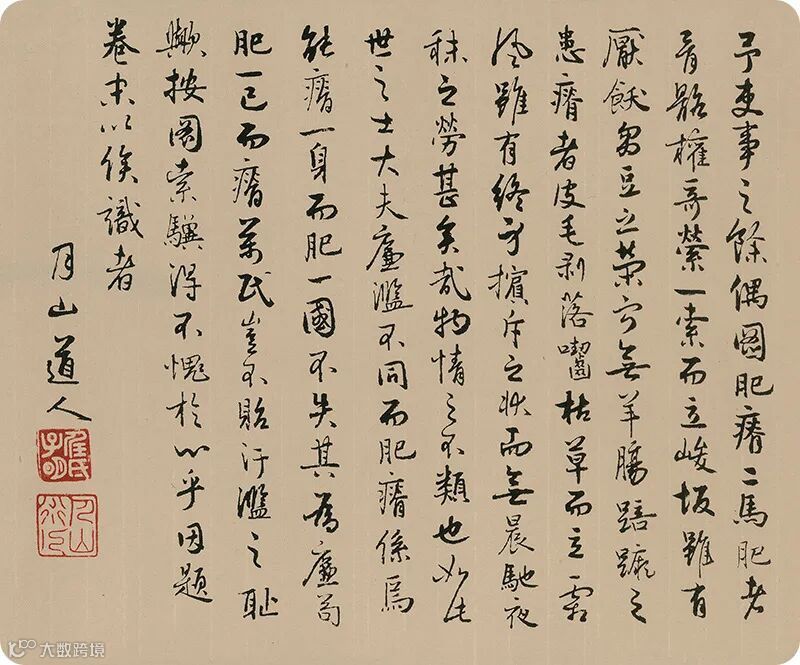 予吏事之餘偶圖肥瘠二馬肥者
骨骼權奇縈一索而立峻坡雖有
厭飫芻豆之榮寧無羊腸踣蹶之
患瘠者皮毛剝落囓枯草而立霜
風雖有終身擯斥之狀而無晨馳夜
秣之勞甚矣哉物情之不類也如此
世之士大夫廉濫不同而肥瘠係焉
能瘠一身而肥一國不失其為廉苟
肥一己而瘠萬民豈不貽汙濫之恥
歟按圖索驥得不愧於心乎因題
卷末以俟識者
月山道人
任氏子明
月山道人
大数跨境